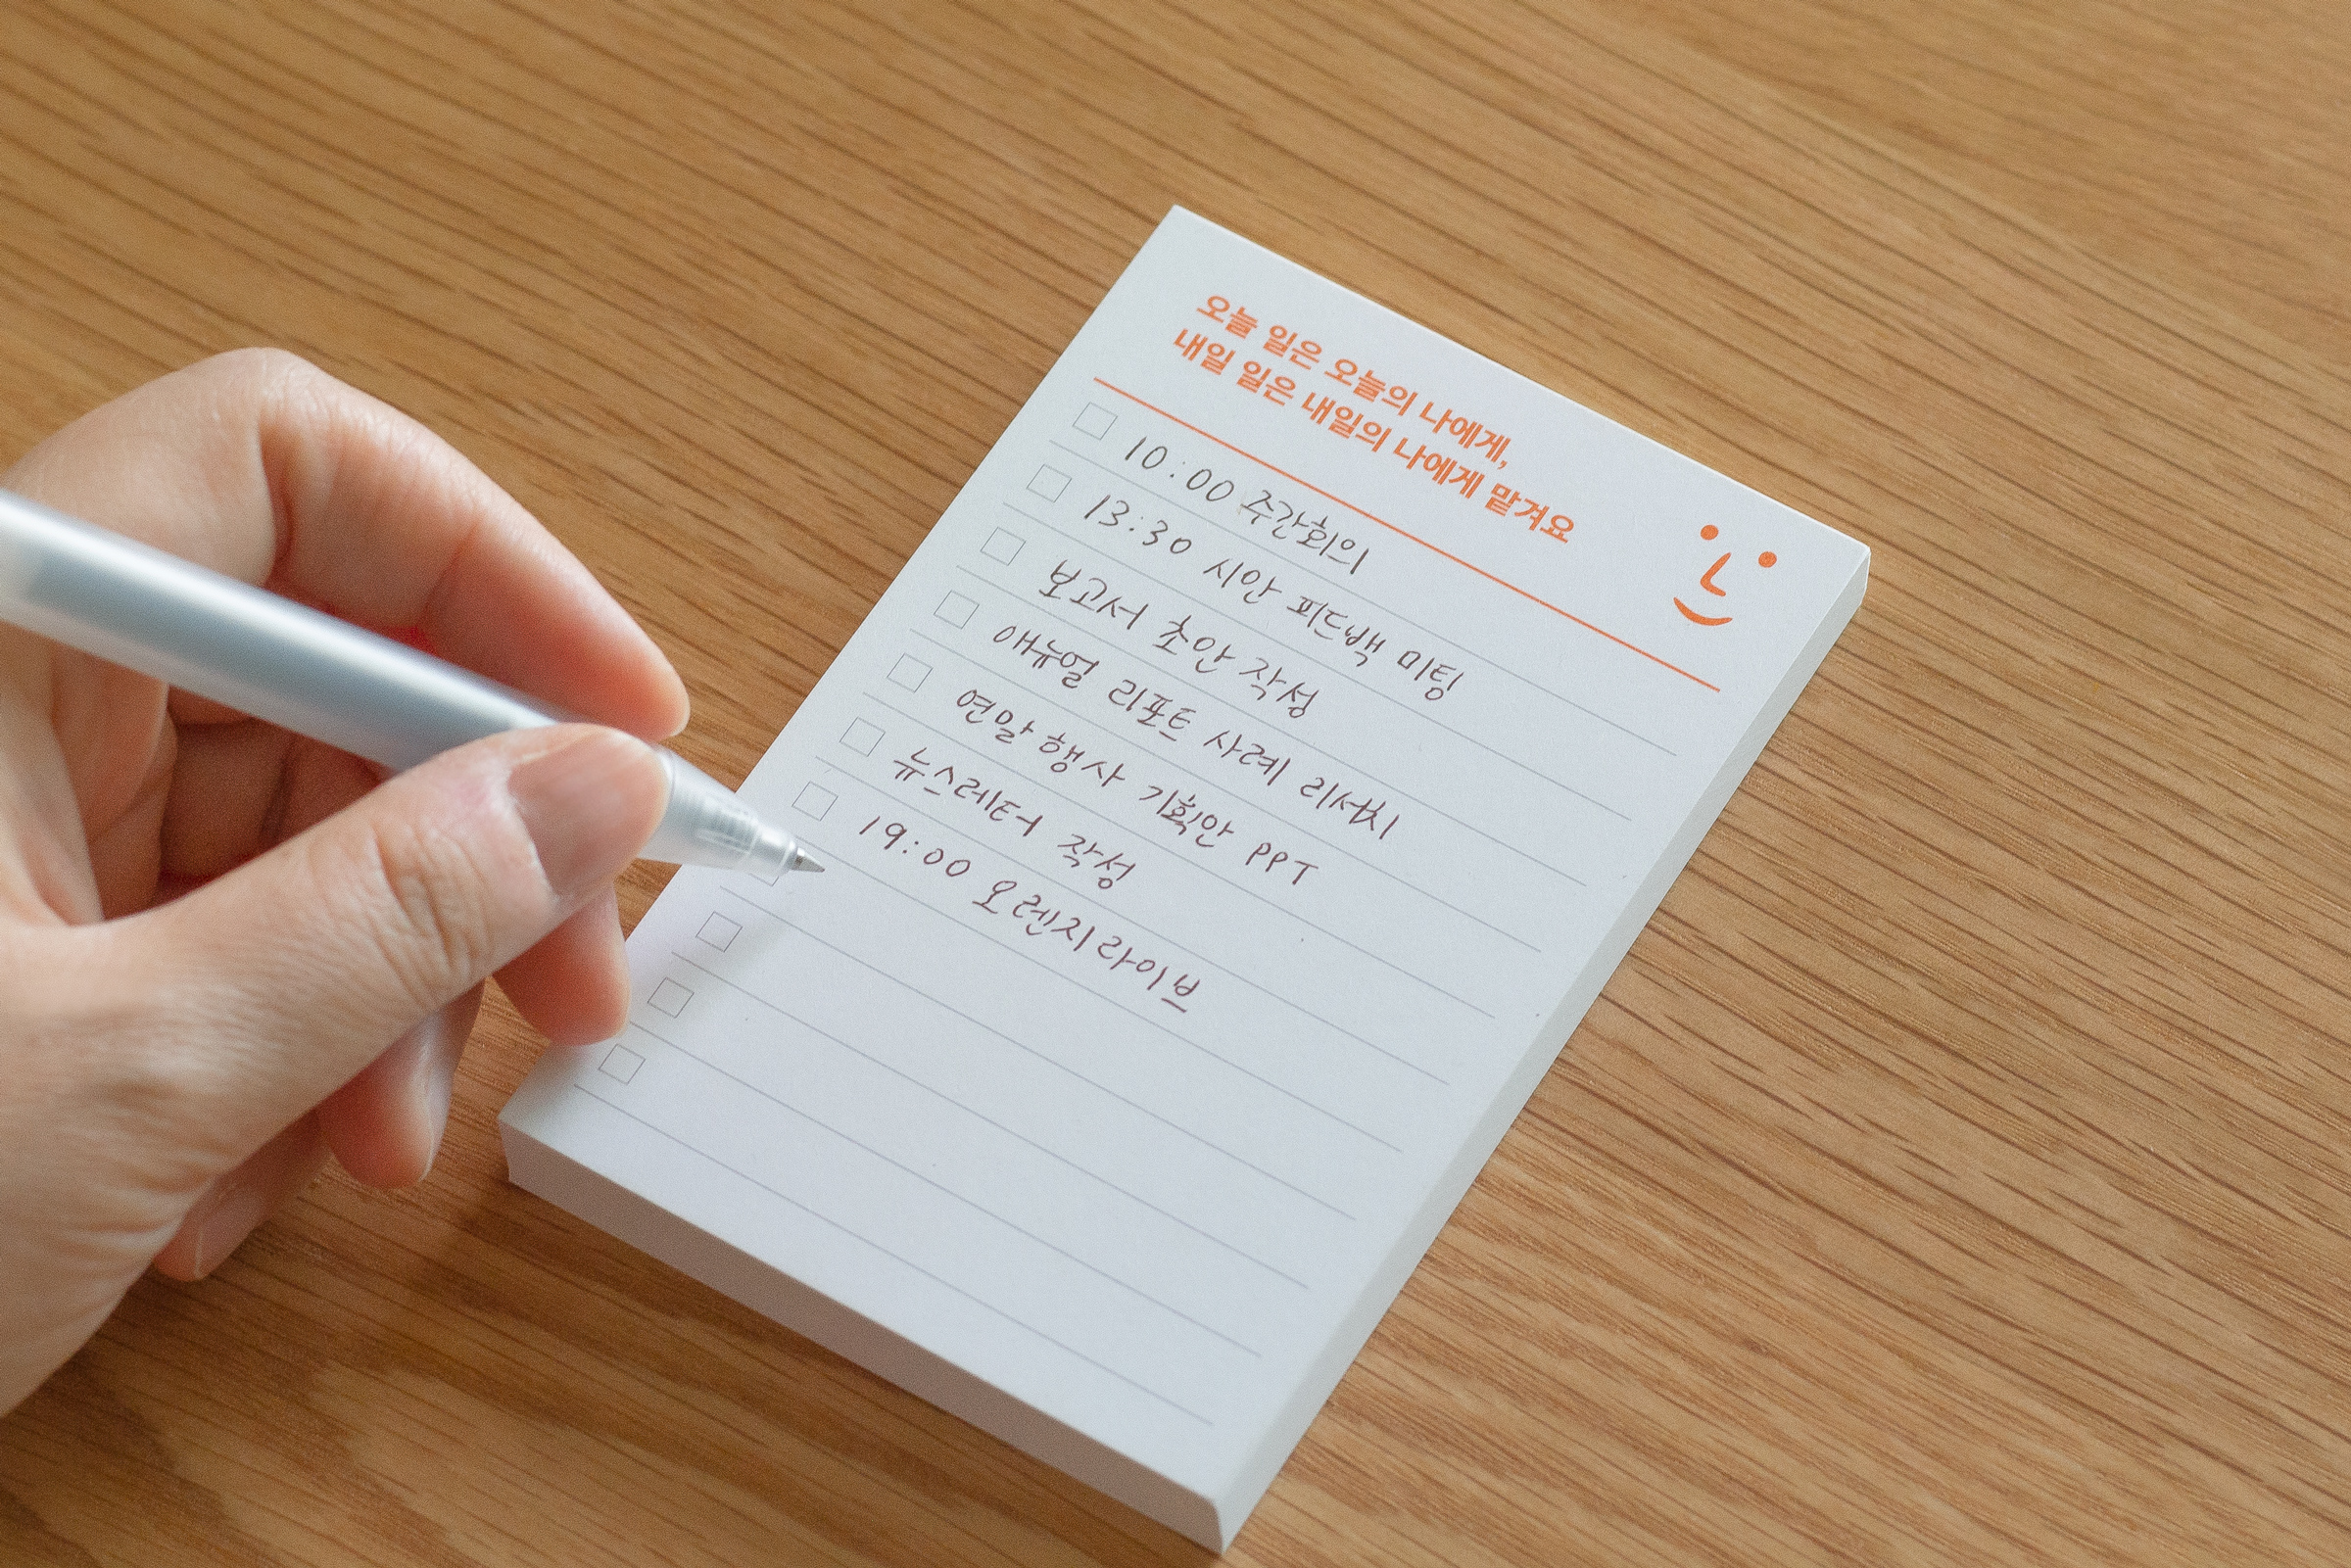 오늘 일은 오늘의 나에게,
내일 일은 내일의 나에게 맡겨요
10:00 주간회의
13:30 시안 피드백 미팅
보고서 초안 작성
애뉴얼 리포트 사례 리서치
연말 행사 기획안 PPT
뉴스레터 작성
19:00 오렌지라이브